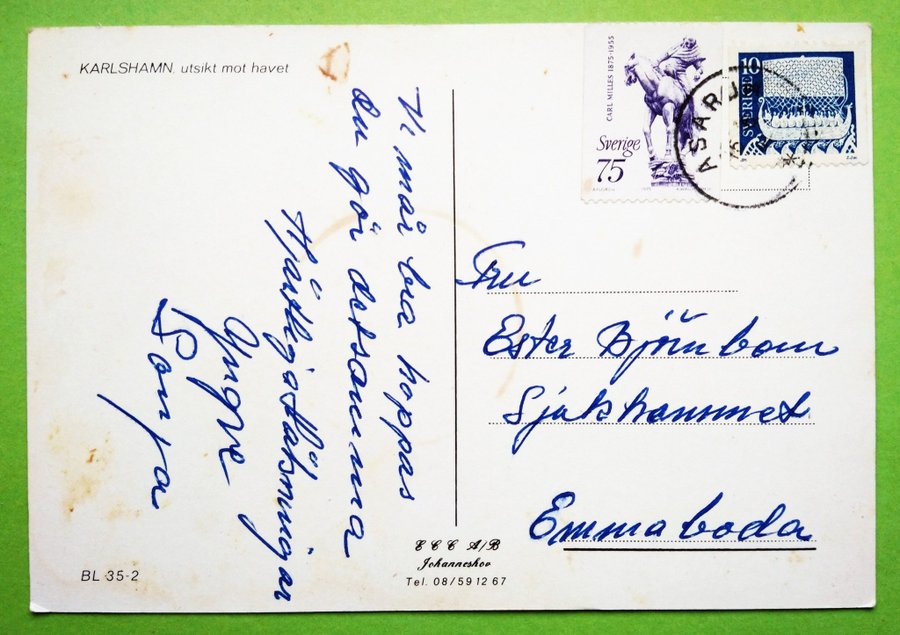 KARLSHAMN, utsikt mot havet
Vi mår bra hoppas
du gör detsamma
Hjärtliga Hälsningar
Yngve
Sonja
BL 35-2
CARL MILLES 1875-1955
Sverige
75
SVERIGE 10
ASARUM
Fru
Ester Björnbom
Sjukhemmet
Emmaboda
ECC A/B
Johanneshov
Tel. 08/59 12 67